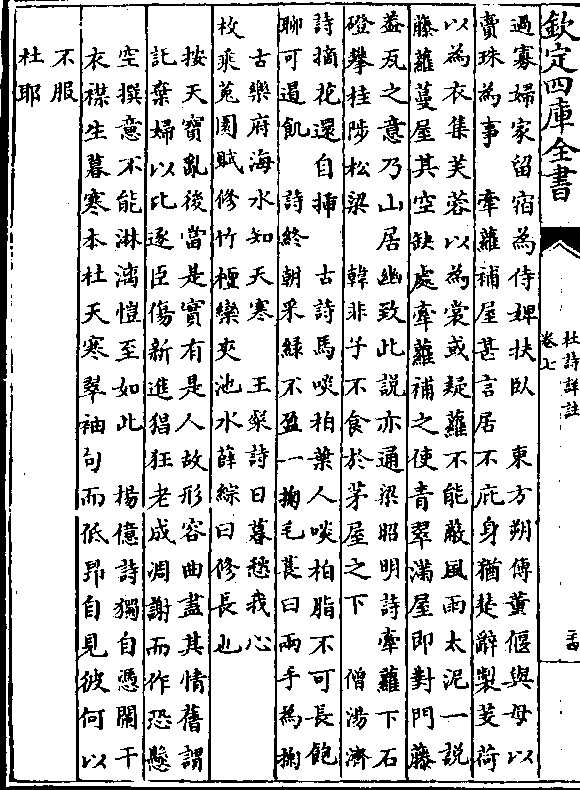 欽定四庫全書
杜詩詳註
卷七
過寡婦家留宿為侍婢扶臥　東方朔傳董偃與母以
賣珠為事　牽蘿補屋甚言居不庇身猶楚辭製芰荷
以為衣集芙蓉以為裳或疑蘿不能蔽風雨太泥一説
藤蘿蔓屋其空缺處牽蘿補之使青翠滿屋即對門藤
葢瓦之意乃山居幽致此説亦通梁昭明詩牽蘿下石
磴攀桂陟松梁　韓非子不食於茅屋之下　僧湯濟
詩摘花還自插　古詩馬啖柏葉人啖柏脂不可長飽
聊可遏飢　詩終朝采緑不盈一掬毛萇曰兩手為掬
古樂府海水知天寒　王粲詩日暮愁我心
枚乘菟園賦修竹檀欒夾池水薛綜曰修長也
按天寶亂後當是實有是人故形容曲盡其情舊謂
託棄婦以比逐臣傷新進猖狂老成凋謝而作恐懸
空撰意不能淋漓愷至如此　楊億詩獨自憑闌干
衣襟生暮寒本杜天寒翠袖句而低昂自見彼何以
不服
杜耶